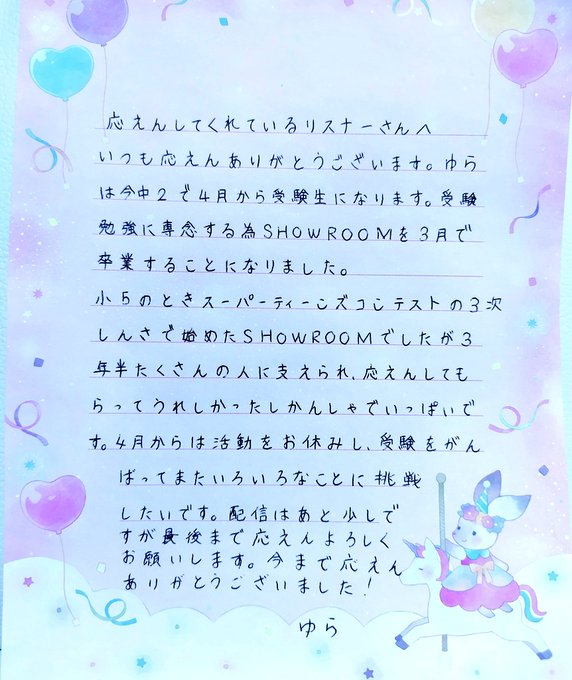 応えんしてくれているリスナーさんへ
いつも応えんありがとうございます。ゆら
は今中2で4月から受験生になります。受験
勉強に専念する為SHOWROOMを3月で
卒業することになりました。
小5のときスーパーティーンズコンテストの3次
しんさで始めたSHOWROOMでしたが3
年半たくさんの人に支えられ、応えんしても
らってうれしかったしかんしゃでいっぱいで
す。4月からは活動をお休みし、受験をがん
ばってまたいろいろなことに挑戦
したいです。配信はあと少しで
すが最後まで応えんよろしく
お願いします。今まで応えん
ありがとうございました!
ゆら